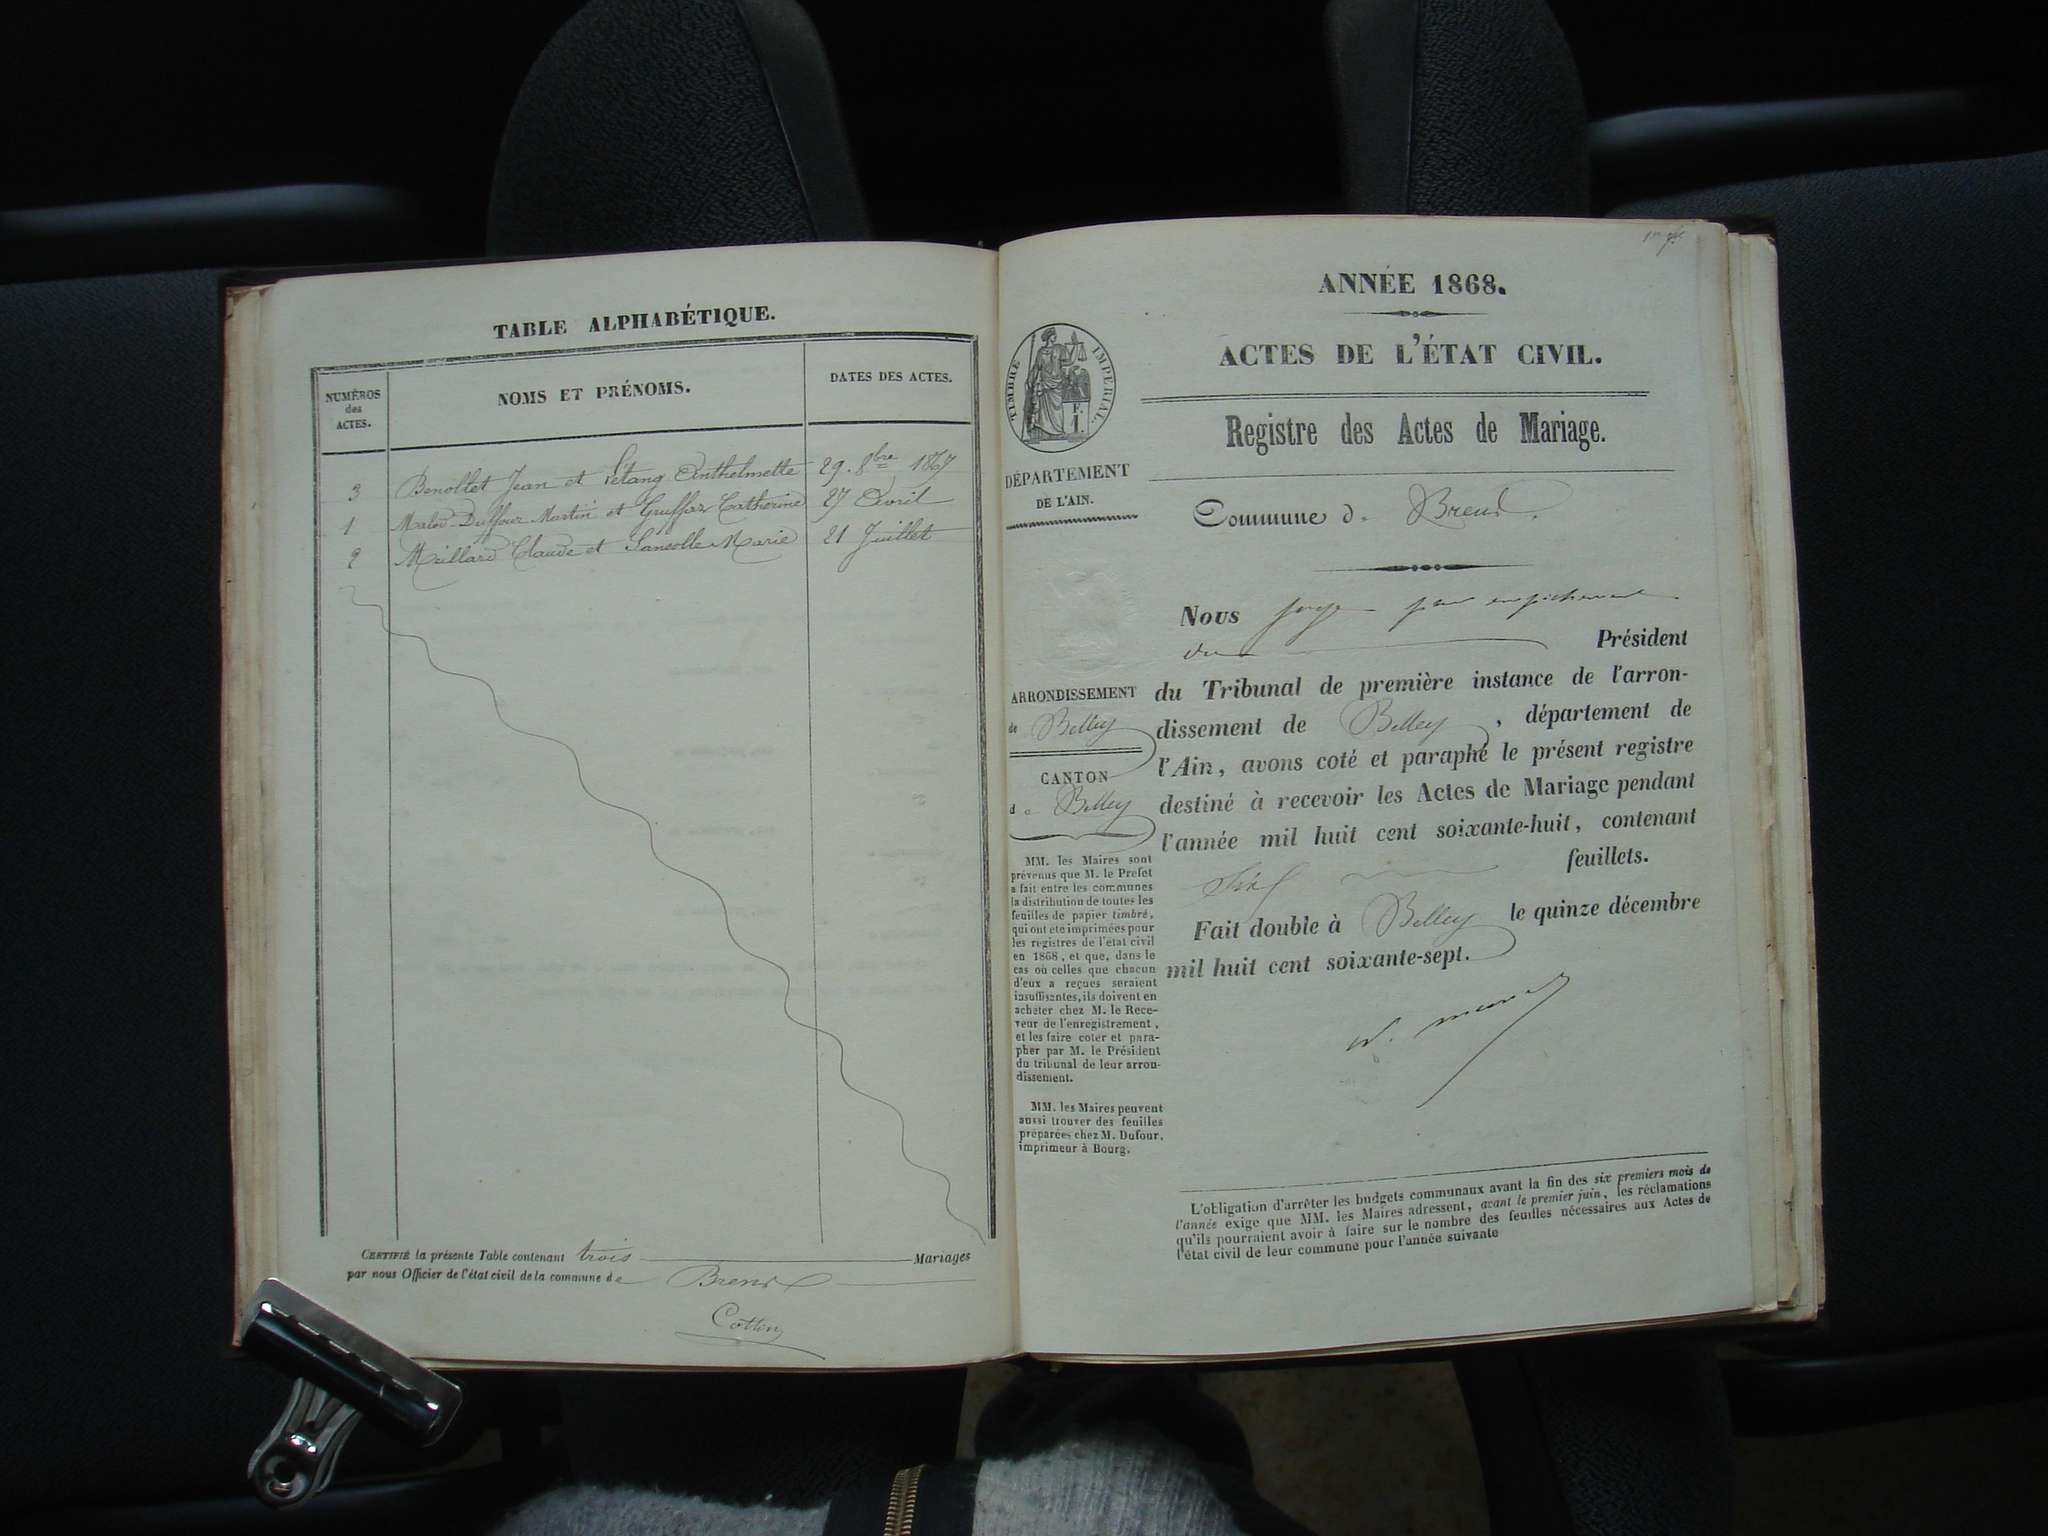 TABLE ALPHABÉTIQUE.
NUMÉROS
des
ACTES.
NOMS ET PRÉNOMS.
DATES DES ACTES.
3 Benollet Jean et Létang Anthelmette 29. 8bre 1867
1 Duffour Martin et Gruffaz Catherine 27 Avril
2 Meillard Claude et Sansolle Marie 21 Juillet
CERTIFIÉ la présente Table contenant trois Mariages
par nous Officier de l'état civil de la commune de Brens
Cottin
ANNÉE 1868.
ACTES DE L'ÉTAT CIVIL.
Registre des Actes de Mariage.
TIMBRE IMPERIAL.
DÉPARTEMENT
DE L'AIN.
Commune de Brens.
Nous juge par empêchement
du Président
du Tribunal de première instance de l'arron-
dissement de Belley, département de
l'Ain, avons coté et paraphé le présent registre
destiné à recevoir les Actes de Mariage pendant
l'année mil huit cent soixante-huit, contenant
feuillets.
Fait double à Belley le quinze décembre
mil huit cent soixante-sept.
ARRONDISSEMENT
de Belley
CANTON
de Belley
MM. les Maires sont
prévenus que M. le Prefet
a fait entre les communes
la distribution de toutes les
feuilles de papier timbré,
qui ont eté imprimées pour
les registres de l'état civil
en 1868, et que, dans le
cas où celles que chacun
d'eux a reçues seraient
insuffisantes, ils doivent en
acheter chez M. le Rece-
veur de l'enregistrement,
et les faire coter et para-
pher par M. le Président
du tribunal de leur arron-
dissement.
MM. les Maires peuvent
aussi trouver des feuilles
préparées chez M. Dufour,
imprimeur à Bourg.
L'obligation d'arrêter les budgets communaux avant la fin des six premiers mois de
l'année exige que MM. les Maires adressent, avant le premier juin, les réclamations
qu'ils pourraient avoir à faire sur le nombre des feuilles nécessaires aux Actes de
l'état civil de leur commune pour l'année suivante